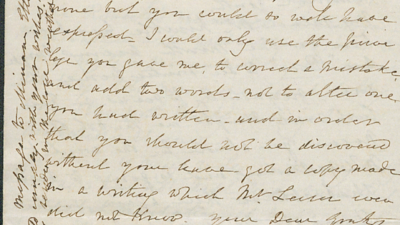 none but you could so well have
expressed - I could only use the privi
lege you gave me, to correct a mistake
and add two words - not to alter one
you had written - and in order
that you should not be discovered
without your leave got a copy made
in a writing which Mr. even
did not know. your Dear
message to
comply with your